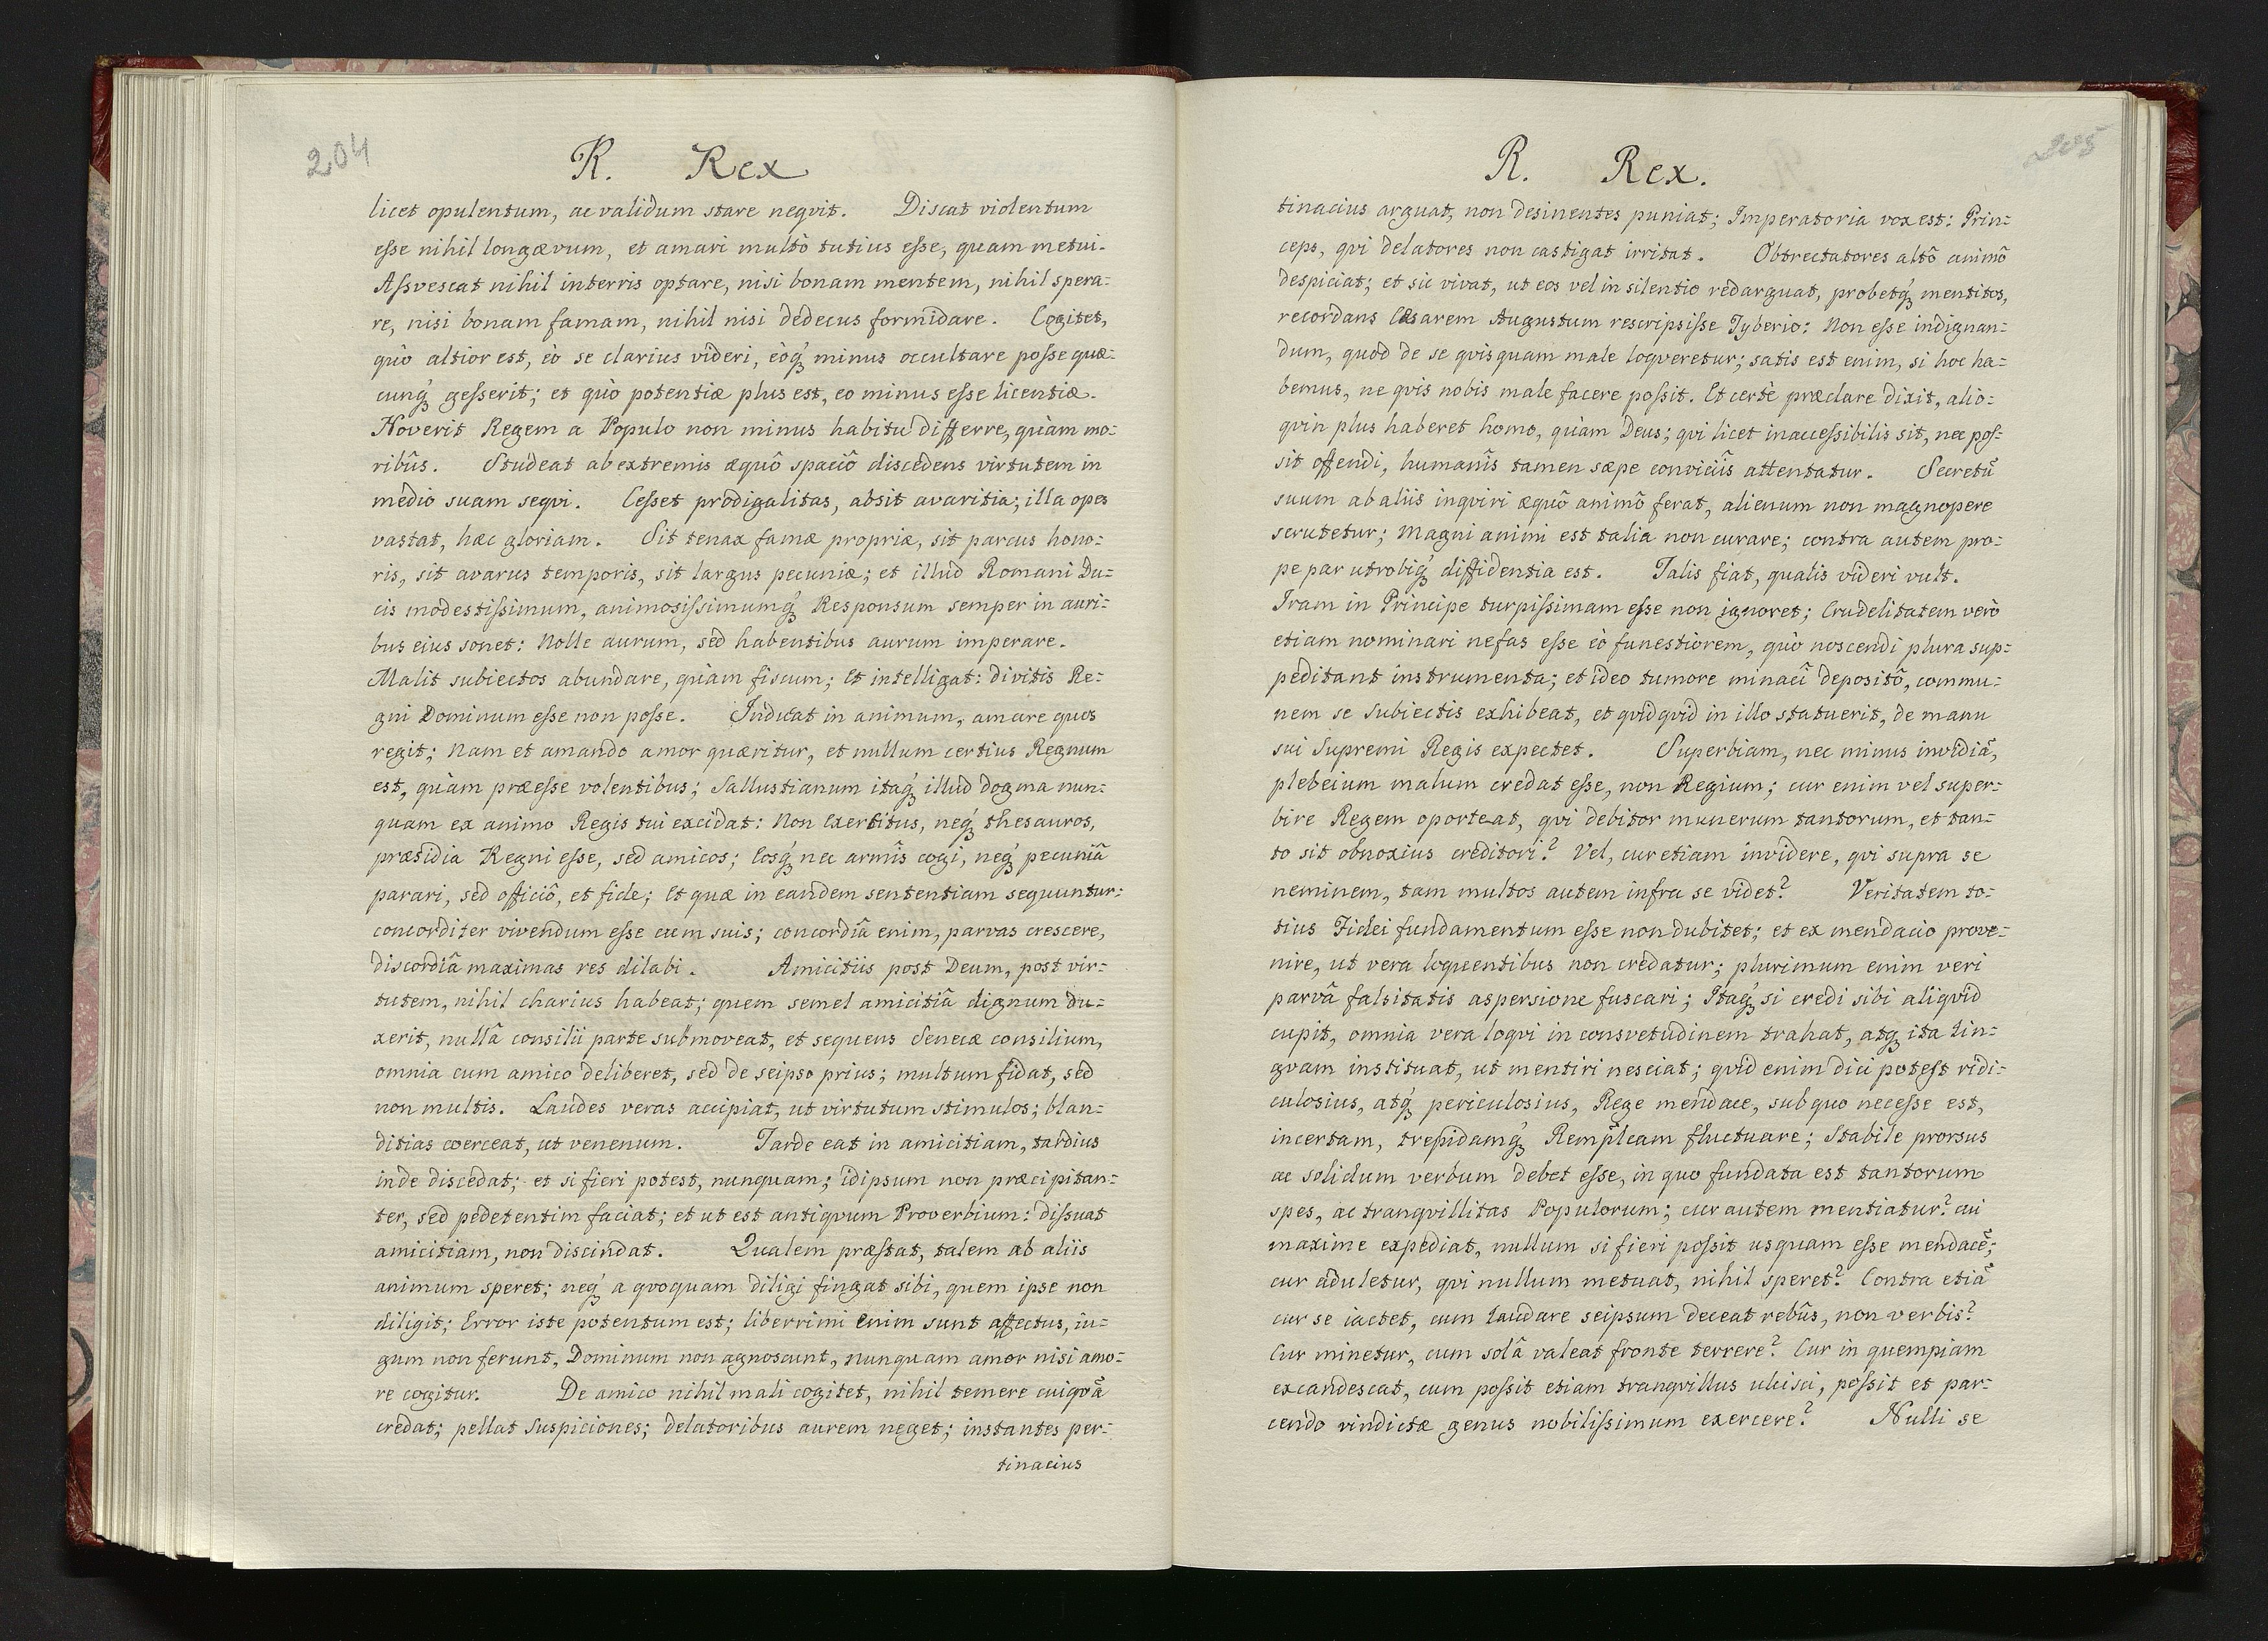 204
R. Rex
licet opulentum, ac validum stare neqvit. Discat violentum
eſse nihil longævum, et amari multò tutius esse, quam metui.
Aſsvescat nihil interris optare, nisi bonam mentem, nihil spera=
re, nisi bonam famam, nihil nisi dedecus formidare. Cogitet,
quò altior est, èò se clarius videri, èòq́ꝫ minus occultare poſse quæ=
cunq́ꝫ geſserit; et quò potentiæ plus est, eo minus eſse licentiæ.
Noverit Regem a Populo non minus habitu differre, quàm mo=
ribûs. Studeat ab extremis æquô spaciô discedens virtutem in
medio suam seqvi. Ceſset prodigalitas, absit avaritia; illa opes
vastat, hæc gloriam. Sit tenax famæ propriæ, sit parcus hono=
ris, sit avarus temporis, sit largus pecuniæ; et illud Romani Du=
cis modestiſsimum, animosiſsimumq́ꝫ Responsum semper in auri=
bus eius sonet: Nolle aurum, sed habentibus aurum imperare.
Malit subiectos abundare, quàm fiscum; Et intelligat: divitis Re=
gni Dominum eſse non poſse. Inducat in animum, amare quos
regit; Nam et amando amor quæritur, et nullum certius Regnum
est, quàm præeſse volentibus; Sallustianum itaq́ꝫ illud dogma nun=
quam ex animo Regis tui excidat: Non Exercitus, neq́ꝫ thesauros,
præsidia Regni eſse, sed amicos; Eosq́ꝫ nec armîs cogi, neq́ꝫ pecuniâ
parari, sed officiô, et fide; Et quæ in eandem sententiam sequuntur:
concorditer vivendum eſse cum suis; concordiâ enim, parvas crescere,
discordiâ maximas res dilabi. Amicitiis post Deum, post vir=
tutem, nihil charius habeat; quem semel amicitiâ dignum du=
xerit, nullâ consilii parte submoveat, et sequens Senecæ consilium,
omnia cum amico deliberet, sed de seipso prius; multum fidat, sed
non multis. Laudes veras accipiat, ut virtutum stimulos; blan=
ditias coerceat, ut venenum. Tarde eat in amicitiam, tardius
inde discedat; et si fieri potest, nunquam; idipsum non præcipitan=
ter, sed pedetentim faciat; et ut est antiqvum Proverbium: diſsuat
amicitiam, non discindat. Qualem præstat, talem ab aliis
animum speret; neq́ꝫ a qvoquam diligi fingat sibi, quem ipse non
diligit; Error iste potentum est; liberrimi enim sunt affectus, iu=
gum non ferunt, Dominum non agnoscunt, nunquam amor nisi amo=
re cogitur. De amico nihil mali cogitet, nihil temere cuiqvā
credat; pellat suspiciones; delatoribus aurem neget; instantes per=
tinacius
205
R. Rex.
tinacius arguat, non desinentes puniat; Imperatoria vox est: Prin=
ceps, qvi delatores non castigat irritat. Obtrectatores altô animô
despiciat; et sic vivat, ut eos vel in silentio redarguat, probetq́ꝫ mentitos,
recordans Cæsarem Augustum rescripsiſse Tyberio: Non eſse indignan=
dum, quod de se qvisquam male loqveretur; satis est enim, si hoc ha=
bemus, ne qvis nobis male facere poſsit. Et certè præclare dixit, alio=
qvin plus haberet homo, quàm Deus; qvi licet inacceſsibilis sit, nec poſ=
sit offendi, humanîs tamen sæpe conviciîs attentatur. Secretū
suum ab aliis inqviri æquô animô ferat, alienum non magnopere
scrutetur; Magni animi est talia non curare; contra autem pro=
pe par utrobiq́ꝫ diffidentia est. Talis fiat, qualis videri vult.
Iram in Principe turpiſsimam eſse non ignoret; Crudelitatem verò
etiam nominari nefas eſse èò funestiorem, quò noscendi plura sup=
peditant instrumenta; et ideo tumore minacî depositô, commu=
nem se Subiectis exhibeat, et qvidqvid in illo statuerit, de manu
sui Supremi Regis expectet. Superbiam, nec minus invidiā,
plebeium malum credat eſse, non Regium; cur enim vel super=
bire Regem oporteat, qvi debitor munerum tantorum, et tan=
to sit obnoxius creditori? Vel, cur etiam invidere, qvi supra se
neminem, tam multos autem infra se videt? Veritatem to=
tius Fidei fundamentum eſse non dubitet; et ex mendacio prove=
nire, ut vera loquentibus non credatur; plurimum enim veri
parvâ falsitatis aspersione fuscari; Itaq́ꝫ si credi sibi aliqvid
cupit, omnia vera loqvi in consvetudinem trahat, atqꝫ ita lin=
gvam instituat, ut mentiri nesciat; qvid enim dici potest ridi=
culosius, atq́ꝫ periculosius, Rege mendace, sub quo neceſse est,
incertam, trepidamq́ꝫ Rempl̃cam fluctuare; Stabile prorsus
ac solidum verbum debet eſse, in quo fundata est tantorum
spes, ac tranqvillitas Populorum; cur autem mentiatur? cui
maxime expediat, nullum si fieri poſsit usquam eſse mendacē;
cur aduletur, qvi nullum metuat, nihil speret? Contra etiā
cur se iactet, cum laudare seipsum deceat rebûs, non verbis?
Cur minetur, cum solâ valeat fronte terrere? Cur in quempiam
excandescat, cum poſsit etiam tranqvillus ulcisci, poſsit et par=
cendo vindictæ genus nobiliſsimum exercere? Nulli se